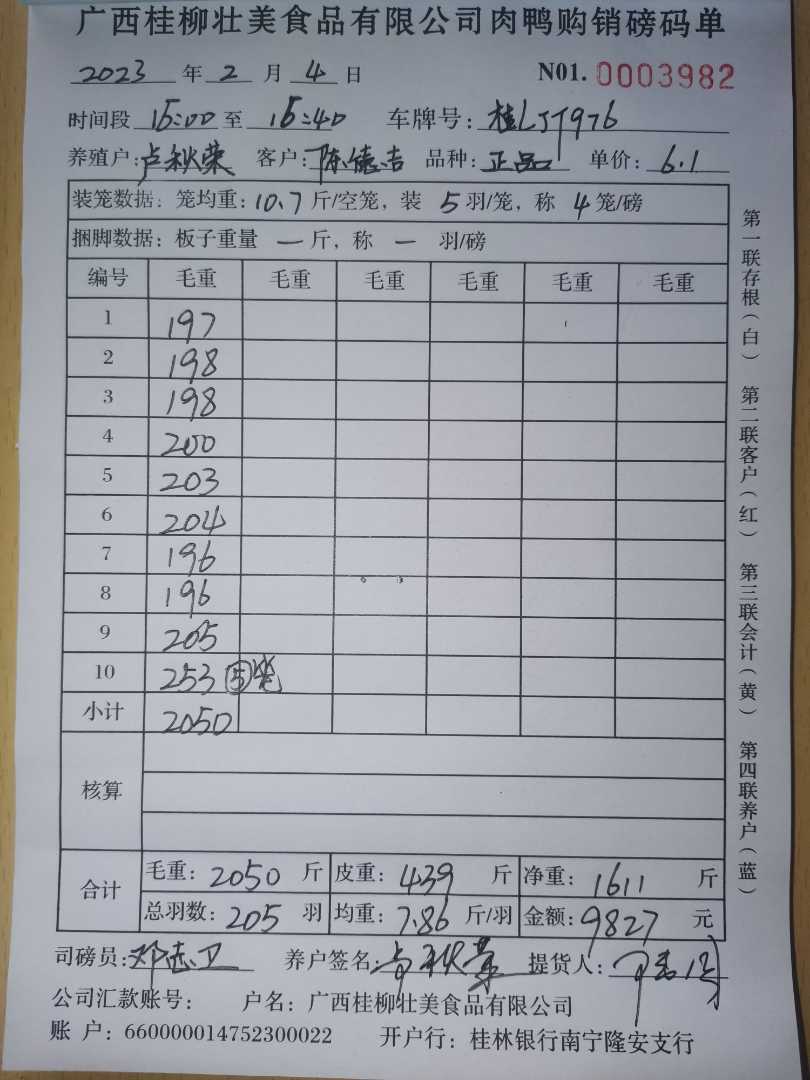 广西桂柳壮美食品有限公司肉鸭购销磅码单
2023 年 2 月 4 日 N01. 0003982
时间段 15:00 至 15:40 车牌号: 桂LJT976
养殖户: 卢秋荣 客户: 陈德吉 品种: 正品 单价: 6.1
装笼数据: 笼均重: 10.7 斤/空笼, 装 5 羽/笼, 称 4 笼/磅
捆脚数据: 板子重量 一 斤, 称 一 羽/磅
编号 毛重 毛重 毛重 毛重 毛重 毛重
1 197
2 198
3 198
4 200
5 203
6 204
7 196
8 196
9 205
10 253 ⑤笼
小计 2050
核算
合计
毛重: 2050 斤 皮重: 439 斤 净重: 1611 斤
总羽数: 205 羽 均重: 7.86 斤/羽 金额: 9827 元
司磅员: 邓志卫 养户签名: 卢秋荣 提货人:
公司汇款账号: 户名: 广西桂柳壮美食品有限公司
账 户: 660000014752300022 开户行: 桂林银行南宁隆安支行
第一联存根(白) 第二联客户(红) 第三联会计(黄) 第四联养户(蓝)